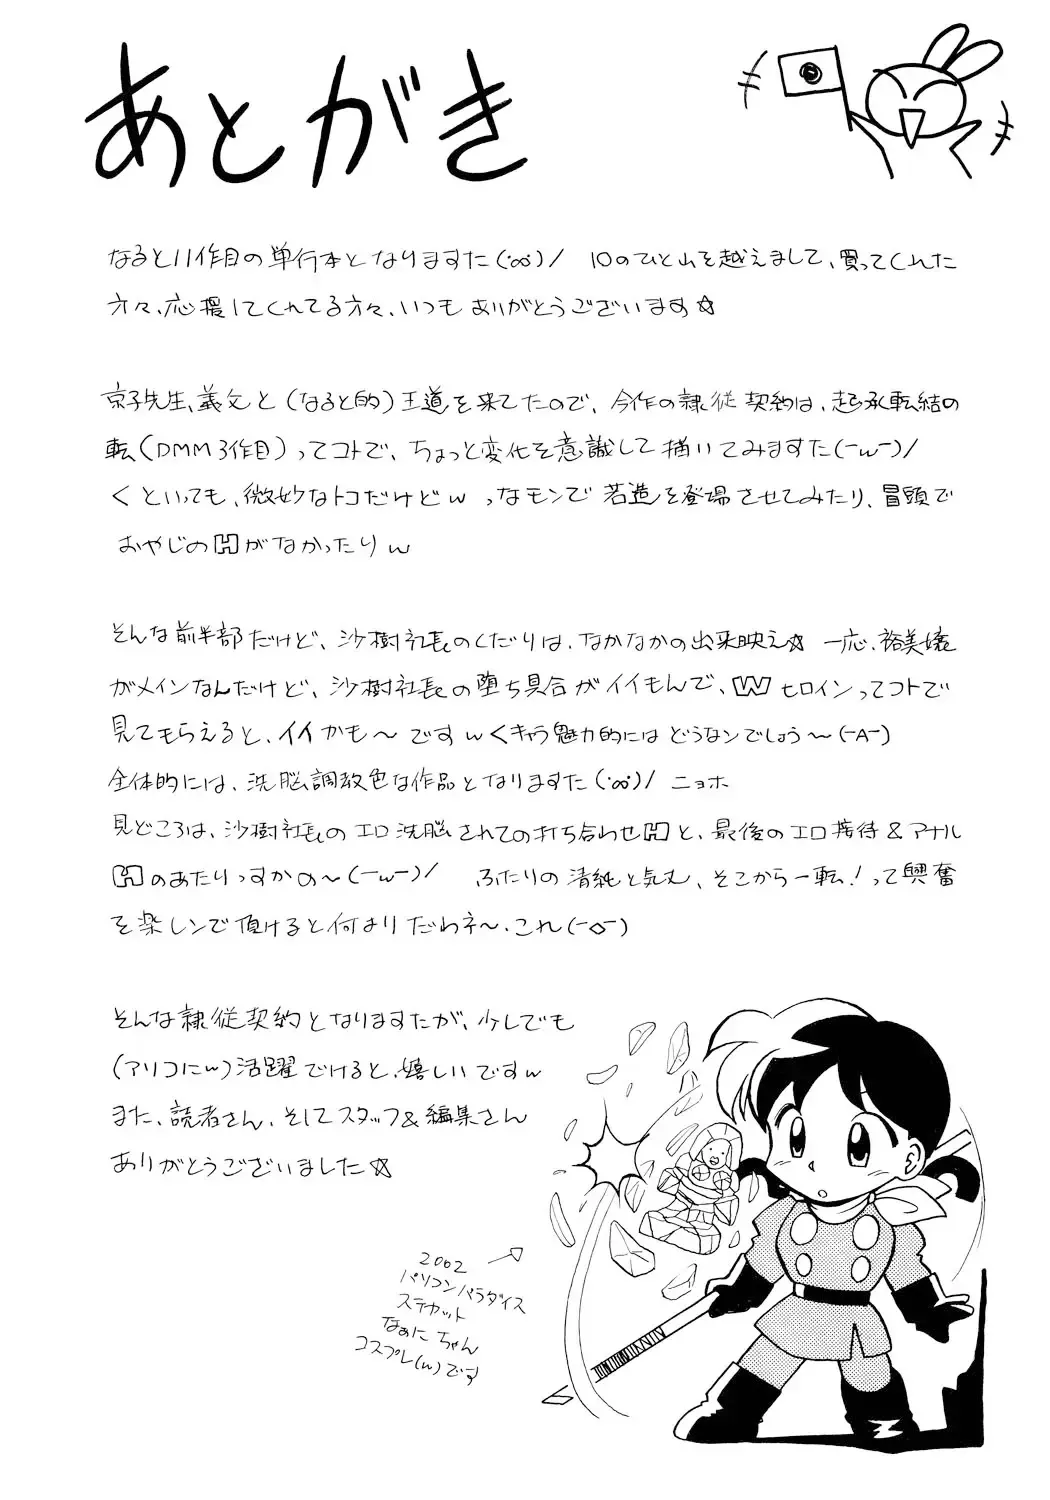 あとがき
なると11作目の単行本となりますた(･∞･)/ 10のひと山を越えまして、買ってくれた
方々、応援してくれてる方々、いつもありがとうございます☆
京子先生、義父と(なると的)王道を来てたので、今作の隷従契約は、起承転結の
転(DMM3作目)ってコトで、ちょっと変化を意識して描いてみますた(ーwー)/
くといっても、微妙なトコだけどw っなモンで若造を登場させてみたり、冒頭で
おやじのHがなかったりw
そんな前半部だけど、沙樹社長のくだりは、なかなかの出来映え☆ 一応、裕美嬢
がメインなんだけど、沙樹社長の堕ち具合がイイもんで、Wヒロインってコトで
見てもらえると、イイかも〜ですw くキャラ魅力的にはどうなンでしょう〜(ーAー)
全体的には、洗脳調教色な作品となりますた(･∞･)/ ニョホ
見どころは、沙樹社長のエロ洗脳されての打ち合わせHと、最後のエロ接待&アナル
Hのあたりっすかの〜(ーwー)/ ふたりの清純と気丈、そこから一転!って興奮
を楽しンで頂けると何よりだわネ〜、これ(ー◇ー)
そんな隷従契約となりますたが、少しでも
(アソコにw)活躍でけると、嬉しいですw
また、読者さん、そしてスタッフ&編集さん
ありがとうございました☆
2002
パソコンパラダイス
ステカット
なぁた ちゃん
コスプレ(w)です